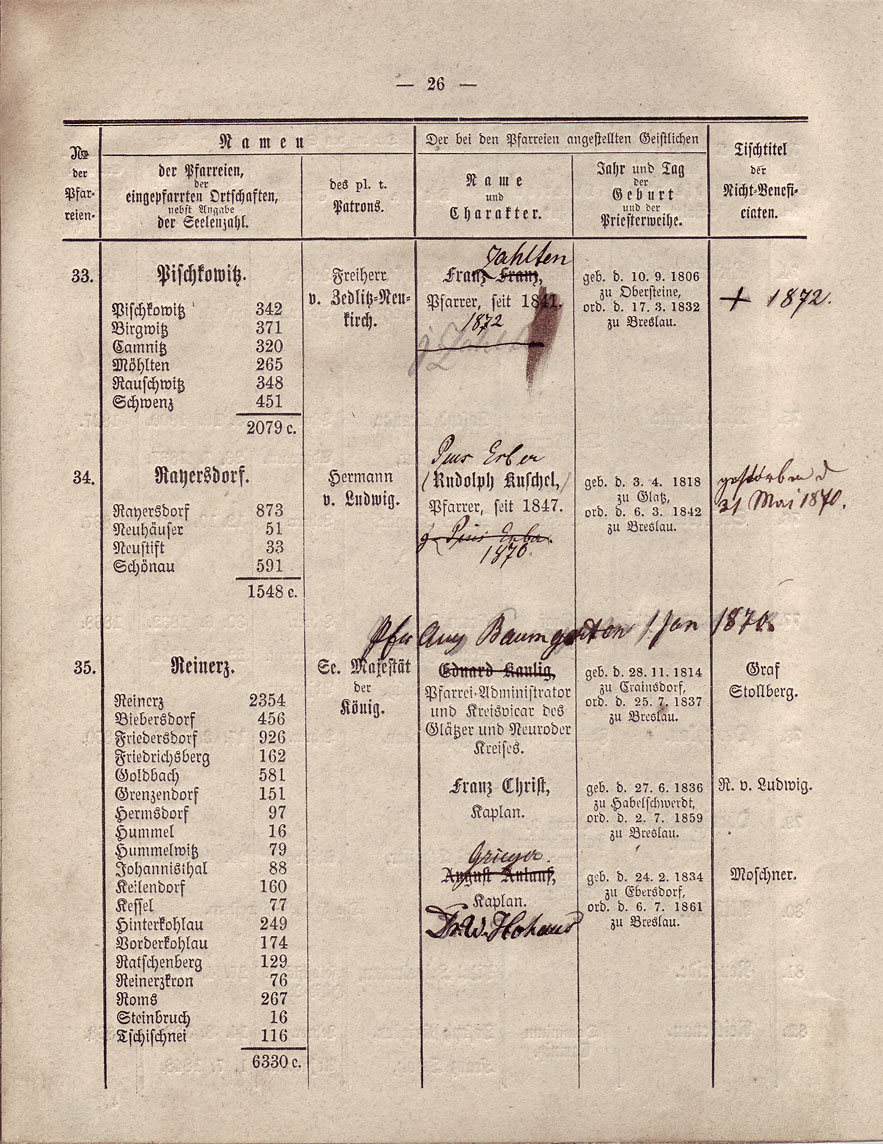 — 26 —
№ der Pfar- reien.
Namen
Der bei den Pfarreien angestellten Geistlichen
Tischtitel der Nicht-Benefi- ciaten.
der Pfarreien,
der
eingepfarrten Ortschaften,
nebst Angabe
der Seelenzahl.
des pl. t.
Patrons.
Name
und
Charakter.
Jahr und Tag
der
Geburt
und der
Priesterweihe.
33.
Pischkowitz.
Pischkowitz 342
Birgwitz 371
Camnitz 320
Möhlten 265
Rauschwitz 348
Schwenz 451
2079 c.
Freiherr
v. Zedlitz-Neu-
kirch.
Zahlten
Franz Franz,
Pfarrer, seit 1841.
1872
geb. d. 10. 9. 1806
zu Obersteine,
ord. d. 17. 3. 1832
zu Breslau.
+ 1872.
34.
Rayersdorf.
Rayersdorf 873
Neuhäuser 51
Neustift 33
Schönau 591
1548 c.
Hermann
v. Ludwig.
Pius Erber
(Rudolph Kuschel,)
Pfarrer, seit 1847.
Pius Erber
1870.
geb. d. 3. 4. 1818
zu Glatz,
ord. d. 6. 3. 1842
zu Breslau.
gestorben d
31 Mai 1870.
Pfr Aug Baumgarten 1 Jan 1870.
35.
Reinerz.
Reinerz 2354
Biebersdorf 456
Friedersdorf 926
Friedrichsberg 162
Goldbach 581
Grenzendorf 151
Hermsdorf 97
Hummel 16
Hummelwitz 79
Johannisthal 88
Keilendorf 160
Kessel 77
Hinterkohlau 249
Vorderkohlau 174
Ratschenberg 129
Reinerzkron 76
Roms 267
Steinbruch 16
Tschischnei 116
6330 c.
Se. Majestät
der
König.
Eduard Kaulig,
Pfarrei-Administrator
und Kreisvicar des
Glätzer und Neuroder
Kreises.
geb. d. 28. 11. 1814
zu Crainsdorf,
ord. d. 25. 7. 1837
zu Breslau.
Graf
Stollberg.
Franz Christ,
Kaplan.
geb. d. 27. 6. 1836
zu Habelschwerdt,
ord. d. 2. 7. 1859
zu Breslau.
R. v. Ludwig.
Grieger.
August Anlauf,
Kaplan.
Dr. W. Hohaus
geb. d. 24. 2. 1834
zu Ebersdorf,
ord. d. 6. 7. 1861
zu Breslau.
Moschner.